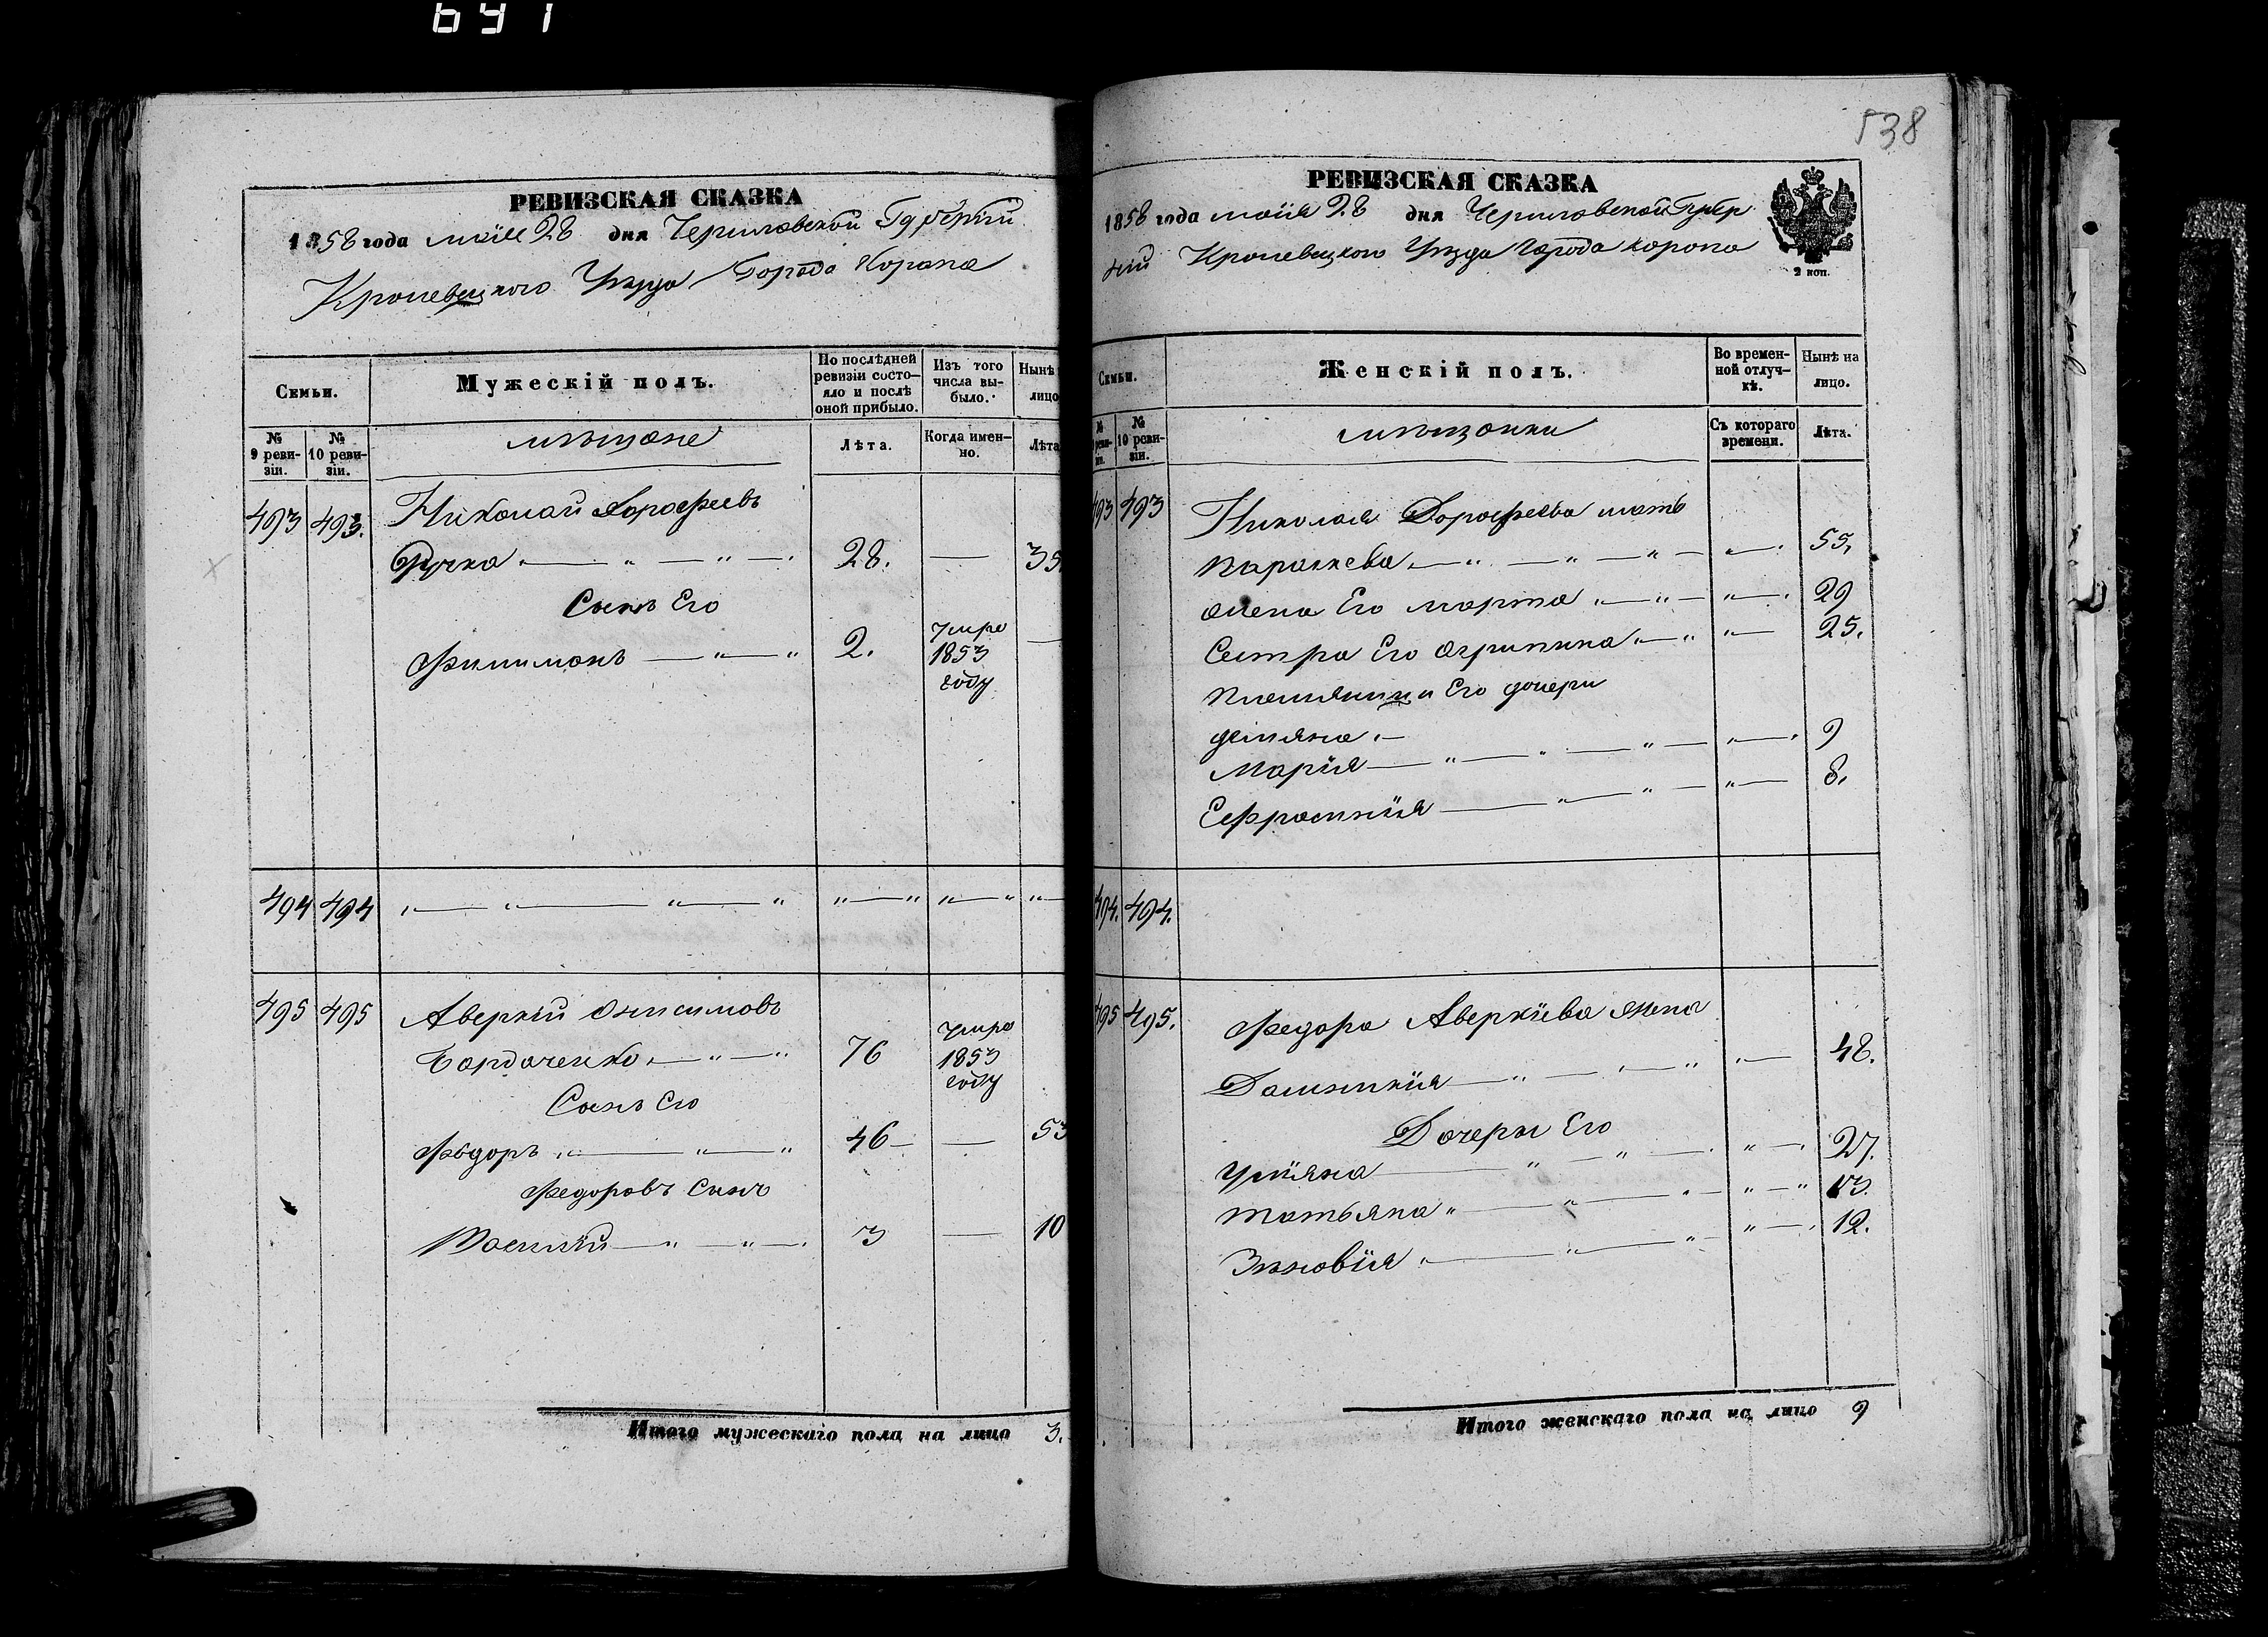 691
РЕВИЗСКАЯ СКАЗКА
1858 года маія 28 дня Черниговской Губерніи
Кролевецкого Уезда Города Коропа
Семьи.
Мужескій полъ.
По послѣдней ревизіи состояло и послѣ оной прибыло.
Изъ того числа выбыло.
Нынѣ
лицо
№ 9 ревизіи.
№ 10 ревизіи.
мещане
Лѣта.
Когда именно.
Лѣта
493 493. Николай Дорофеевъ
Ручка 28. — 35
Сынъ Его
Филимонъ 2. умре 1853 году —
494 494
495 495 Аверкій Онисимовъ
Бардаченко 76 умре 1853 году
Сынъ Его
Фёдоръ 46 — 53
Федоровъ Сынъ
Василій 3 — 10
Итого мужескаго пола на лицо 3.
538
РЕВИЗСКАЯ СКАЗКА
1858 года маія 28 дня Черниговской Губер
ніи Кролевецкого Уезда Города Коропа
2 коп.
Семьи.
Женскій полъ.
Во временной отлучкѣ.
Нынѣ на лицо.
№ 10 ревизіи.
мещанки
Съ котораго времени.
Лѣта.
493 493 Николая Дорофеева мать
Параскева 55.
жена Его Марта 29
Сестра Его Агрипина 25.
Племяници Его дочери
Демяна
Марія 9
Ефросинія 8.
494. 494.
495 495. Федора Аверкіева жена
Домникія 48.
Дочери Его
Уліяна 27.
Татьяна 13.
Зѣновія 12.
Итого женскаго пола на лицо 9